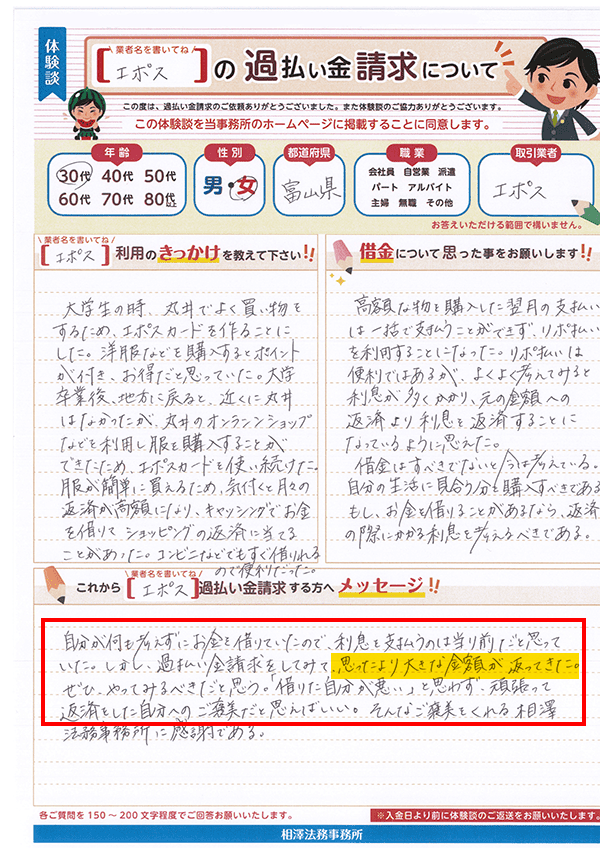 体験談
業者名を書いてね
[エポス]の過払い金請求について
この度は、過払い金請求のご依頼ありがとうございました。また体験談のご協力ありがとうございます。
この体験談を当事務所のホームページに掲載することに同意します。
年齢
30代 40代 50代
60代 70代 80代
性別
男・女
都道府県
富山県
職業
会社員 自営業 派遣
パート アルバイト
主婦 無職 その他
取引業者
エポス
お答えいただける範囲で構いません。
業者名を書いてね
[エポス]利用のきっかけを教えて下さい!!
大学生の時、丸井でよく買い物を
するため、エポスカードを作ることに
した。洋服などを購入するとポイント
が付き、お得だと思っていた。大学
卒業後、地方に戻ると、近くに丸井
はなかったが、丸井のオンランンショップ
などを利用し服を購入することが
できたため、エポスカードを使い続けた。
服が簡単に買えるため、気付くと月々の
返済が高額になり、キャッシングでお金
を借りて ショッピングの返済に当てる
ことがあった。コンビニなどでもすぐ借りれる
ので便利だった。
借金について思った事をお願いします!!
高額な物を購入した翌月の支払い
は一括で支払うことができず、リボ払い
を利用することになった。リボ払いは
便利ではあるが、よくよく考えてみると
利息が多くかかり、元の金額への
返済より利息を返済することに
なっているように思えた。
借金はすべきでないと今は考えている。
自分の生活に見合う分を購入すべきである
もし、お金を借りることがあるなら、返済
の際にかかる利息を考えるべきである。
業者名を書いてね
これから[エポス]過払い金請求する方へメッセージ!!
自分が何も考えずにお金を借りていたので、利息を支払うのは当り前だと思って
いた。しかし、過払い金請求をしてみて、思ったより大きな金額が返ってきた。
ぜひ、やってみるべきだと思う。「借りた自分が悪い」と思わず、頑張って
返済をした自分へのご褒美だと思えばいい。そんなご褒美をくれる相澤
法務事務所に感謝である。
各ご質問を150～200文字程度でご回答お願いいたします。
※入金日より前に体験談のご返送をお願いいたします。
相澤法務事務所